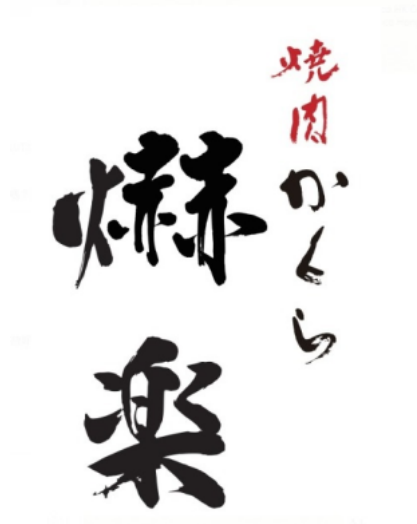 焼肉かくら
爀楽